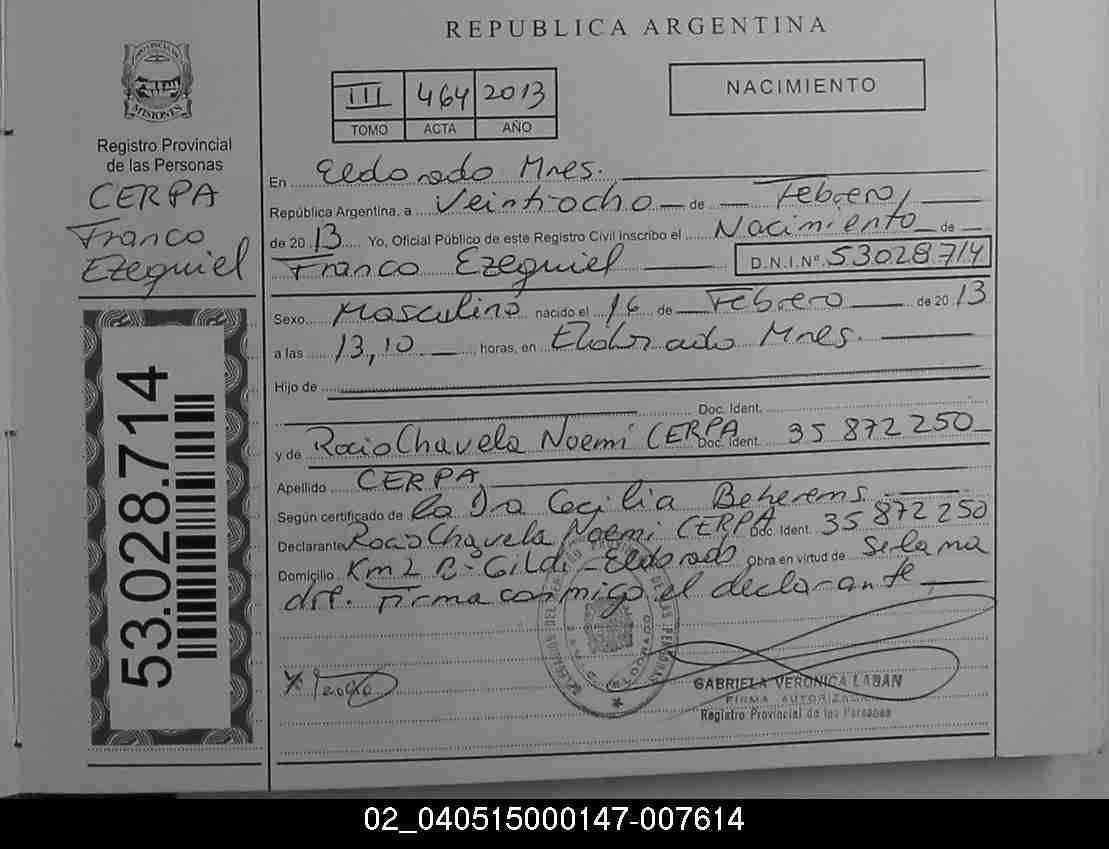 REPUBLICA ARGENTINA
PROVINCIA DE
MISIONES
Registro Provincial
de las Personas
CERPA
Franco
Ezequiel
53.028.714
III 464 2013
TOMO ACTA AÑO
NACIMIENTO
En Eldorado Mnes.
República Argentina, a Veintiocho de Febrero
de 2013 Yo, Oficial Público de este Registro Civil inscribo el Nacimiento de
Franco Ezequiel D.N.I.Nº 53028714
Sexo Masculino nacido el 16 de Febrero de 2013
a las 13,10 horas, en Eldorado Mnes.
Hijo de
Doc. Ident.
y de Rocio Chavela Noemí CERPA Doc. Ident. 35 872 250
Apellido CERPA
Según certificado de la Dra Cecilia Beherems
Declarante Rocio Chavela Noemi CERPA Doc. Ident. 35 872 250
Domicilio Km 2 Bº Gildi - Eldorado Obra en virtud de ser la ma
dre. Firma conmigo el declarante
GABRIELA VERONICA LABAN
FIRMA AUTORIZADA
Registro Provincial de las Personas
02_040515000147-007614